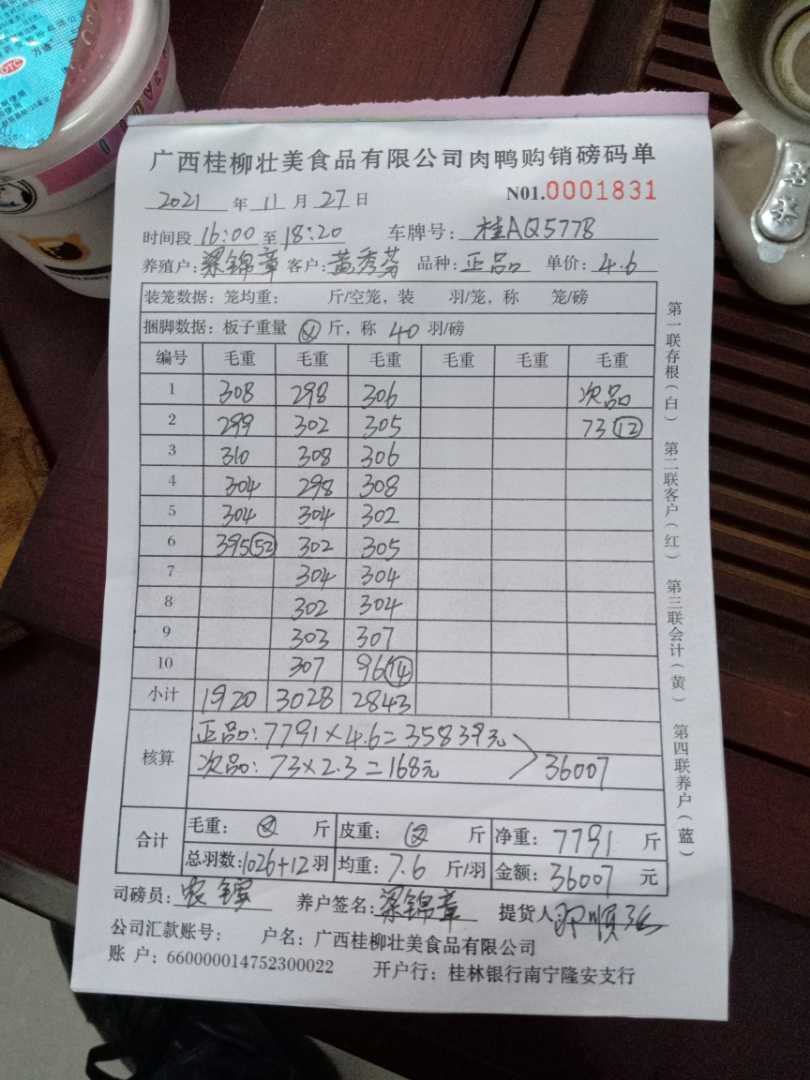 广西桂柳壮美食品有限公司肉鸭购销磅码单
2021 年 11 月 27 日 N01.0001831
时间段 16:00 至 18:20 车牌号: 桂AQ577B
养殖户: 梁锦章 客户: 黄秀芬 品种: 正品 单价: 4.6
装笼数据: 笼均重: 斤/空笼, 装 羽/笼, 称 笼/磅
捆脚数据: 板子重量 斤, 称 40 羽/磅
编号 毛重 毛重 毛重 毛重 毛重 毛重
1 308 298 306 次品
2 299 302 305 73 12
3 310 308 306
4 304 298 308
5 304 304 302
6 395 52 302 305
7 304 304
8 302 304
9 303 307
10 307 96 14
小计 1920 3028 2843
核算 正品: 7791×4.6=35839元
次品: 73×2.3=168元 36007
合计 毛重: 斤 皮重: 斤 净重: 7791 斤
总羽数: 1026+12 羽 均重: 7.6 斤/羽 金额: 36007 元
司磅员: 养户签名: 梁锦章 提货人
公司汇款账号: 户名: 广西桂柳壮美食品有限公司
账 户: 660000014752300022 开户行: 桂林银行南宁隆安支行
第一联存根(白) 第二联客户(红) 第三联会计(黄) 第四联养户(蓝)